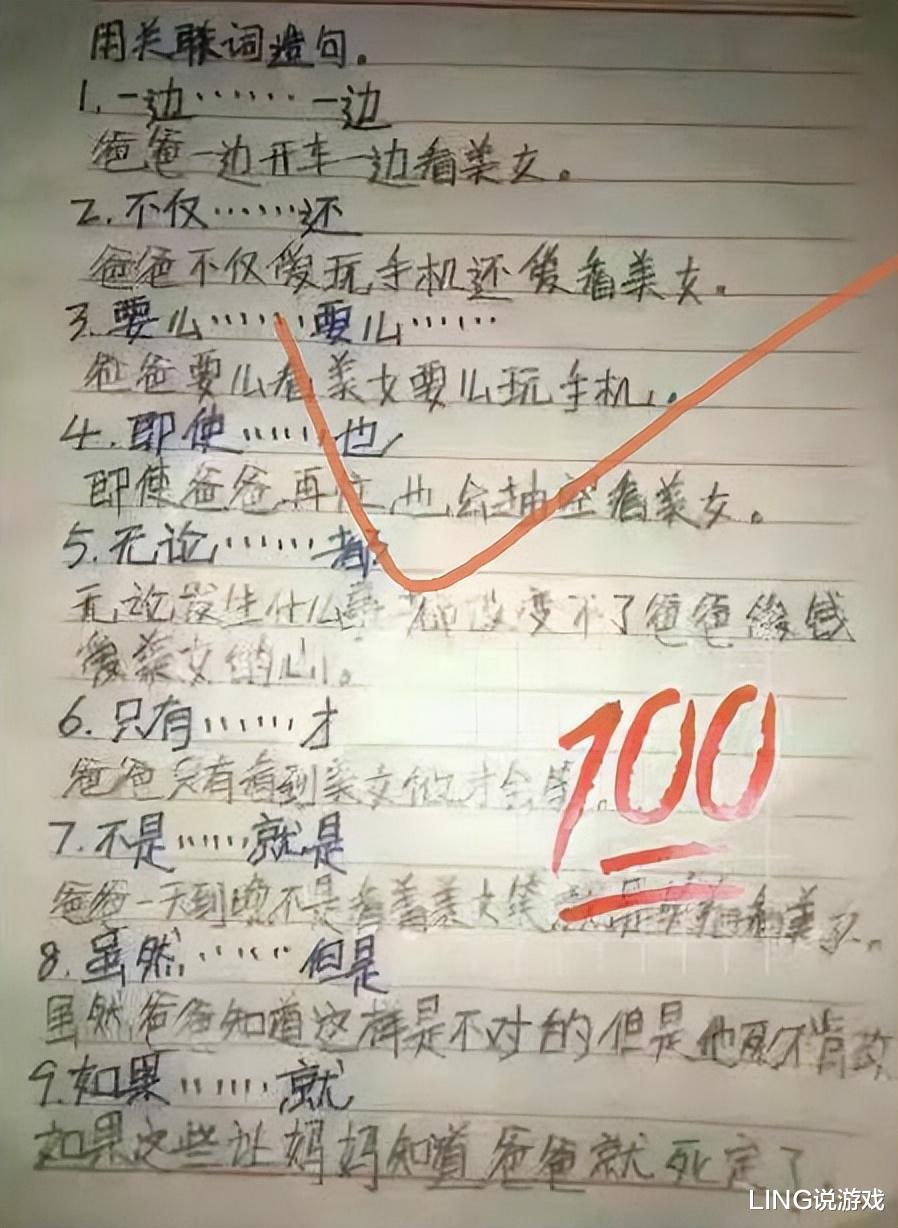 用关联词造句。
1.一边……一边
爸爸一边开车一边看美女。
2.不仅……还
爸爸不仅爱玩手机还爱看美女。
3.要么……要么……
爸爸要么看美女要么玩手机。
4.即使……也
即使爸爸再忙也会抽空看美女。
5.无论……都
无论发生什么事都改变不了爸爸爱钱
爱美女的心。
6.只有……才
爸爸只有看到美女他才会笑。
100
7.不是……就是
爸爸一天到晚不是看着美女笑就是看美女。
8.虽然……但是
虽然爸爸知道这样是不对的但是他愿不肯改
9.如果……就
如果这些让妈妈知道爸爸就死定了
LING说游戏